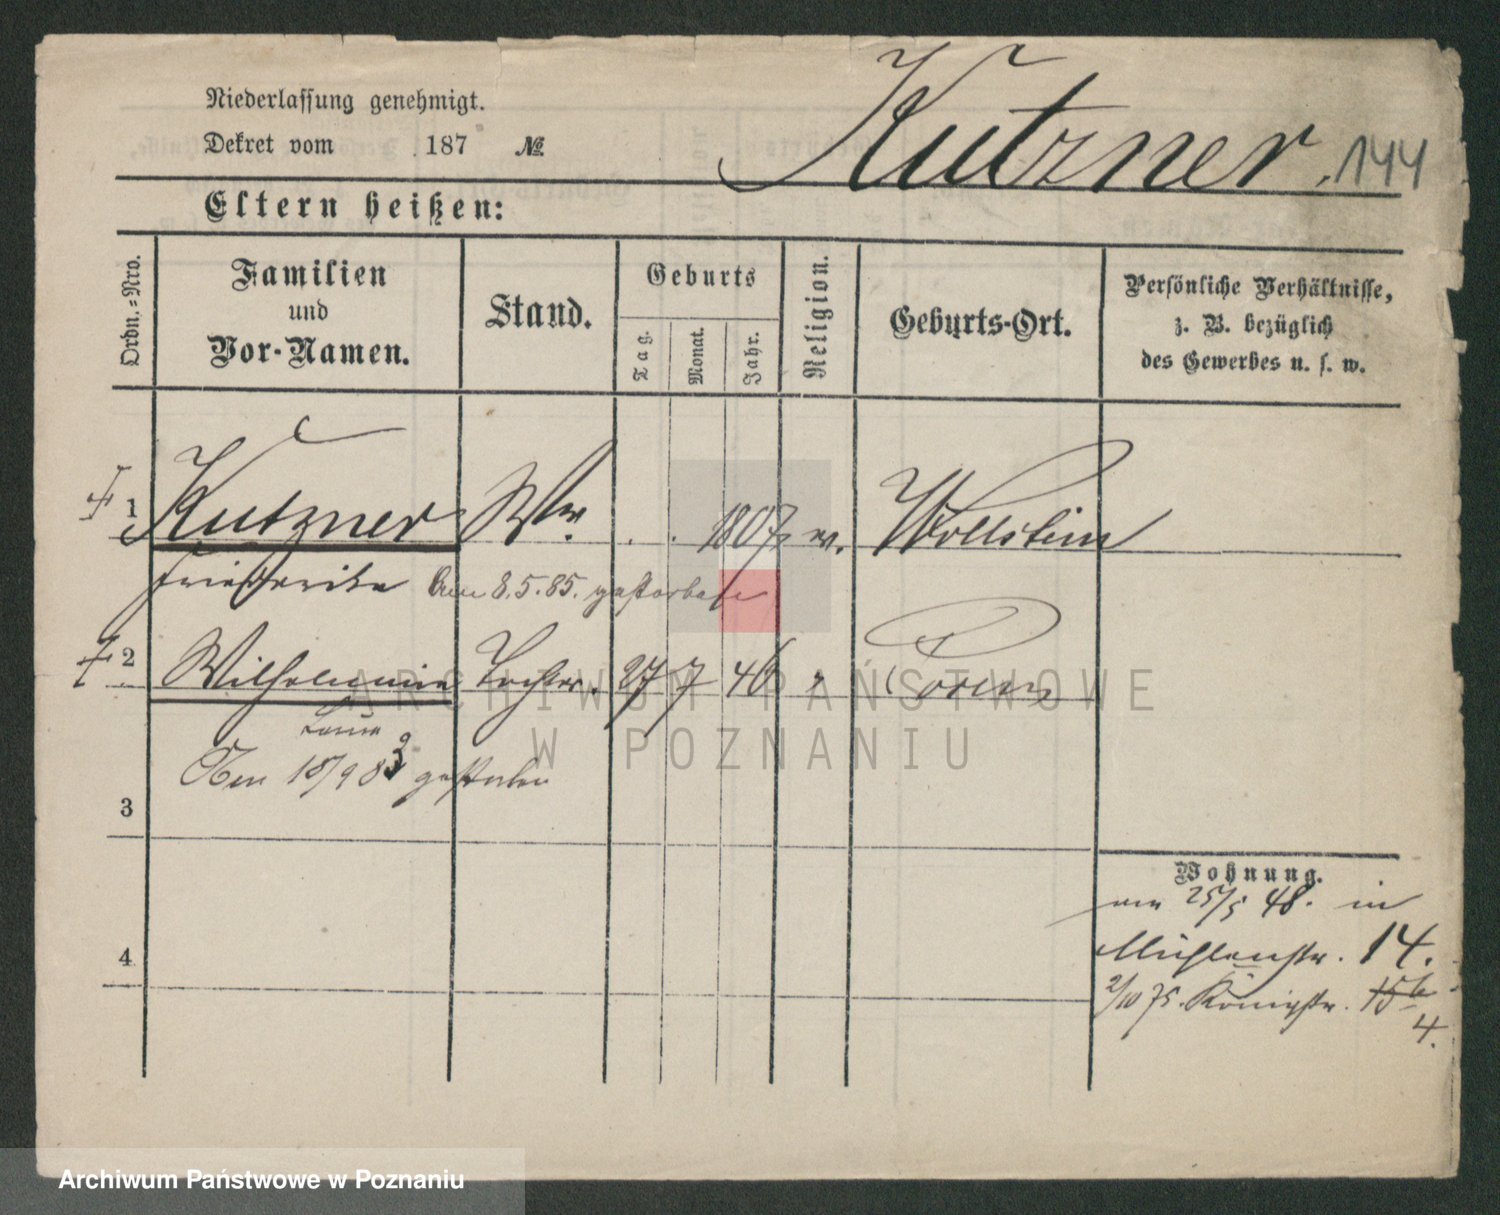 Niederlassung genehmigt.
Dekret vom 187 №
Kutzner 144
Eltern heißen:
Ordn.-Nro.
Familien
und
Vor-Namen.
Stand.
Geburts
Tag.
Monat.
Jahr.
Religion.
Geburts-Ort.
Persönliche Verhältnisse,
z. B. bezüglich
des Gewerbes u. s. w.
1 Kutzner Ww. 1807 ev. Wollstein
Friederike
8.5.85. gestorben
2 Wilhelmine Tochter. 27 7 46 " Posen
18/9 83 gestorben
3
4
Wohnung.
25/5 48. in
Mühlenstr. 14.
2/10 75. Königstr. 15b
4.
ARCHIWUM PAŃSTWOWE
W POZNANIU
Archiwum Państwowe w Poznaniu